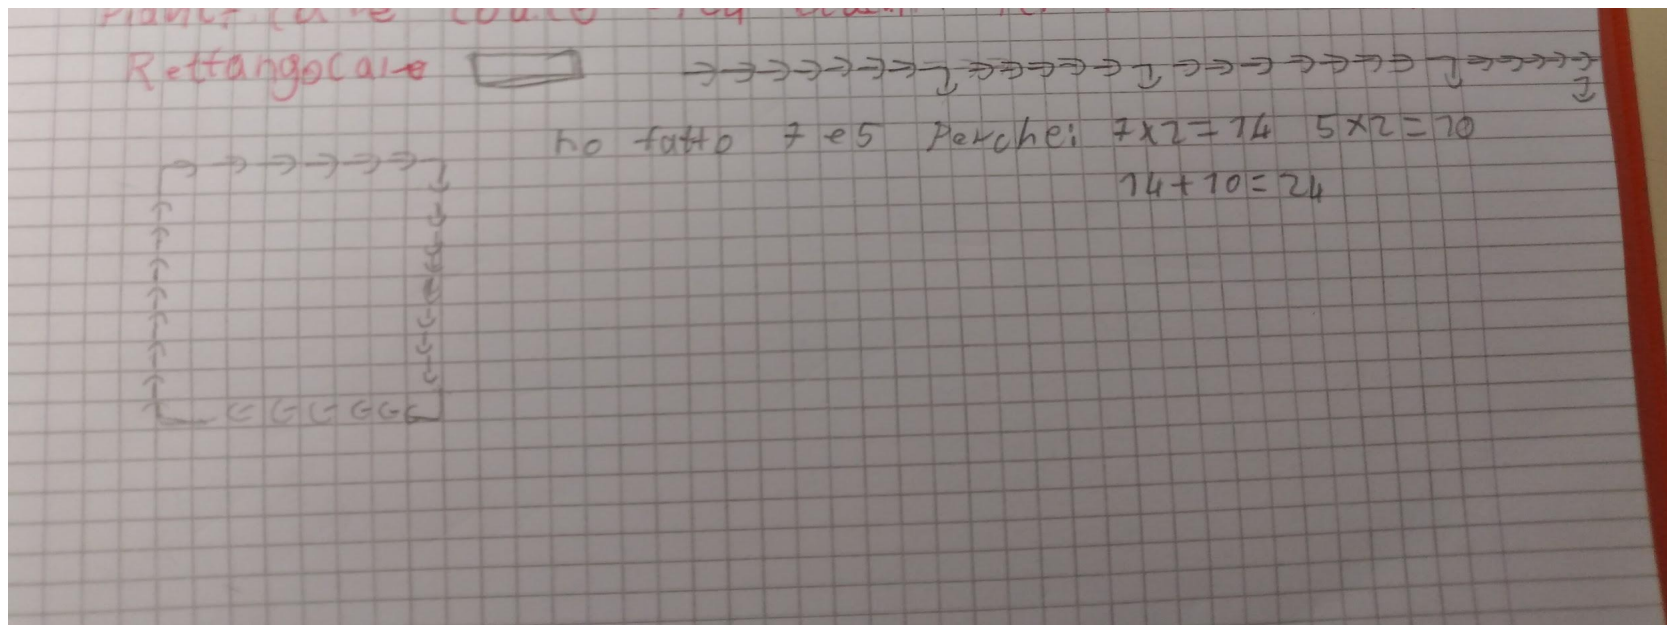 Rettangolare
ho fatto 7 e 5 perche: 7x2=14 5x2=10
14+10=24